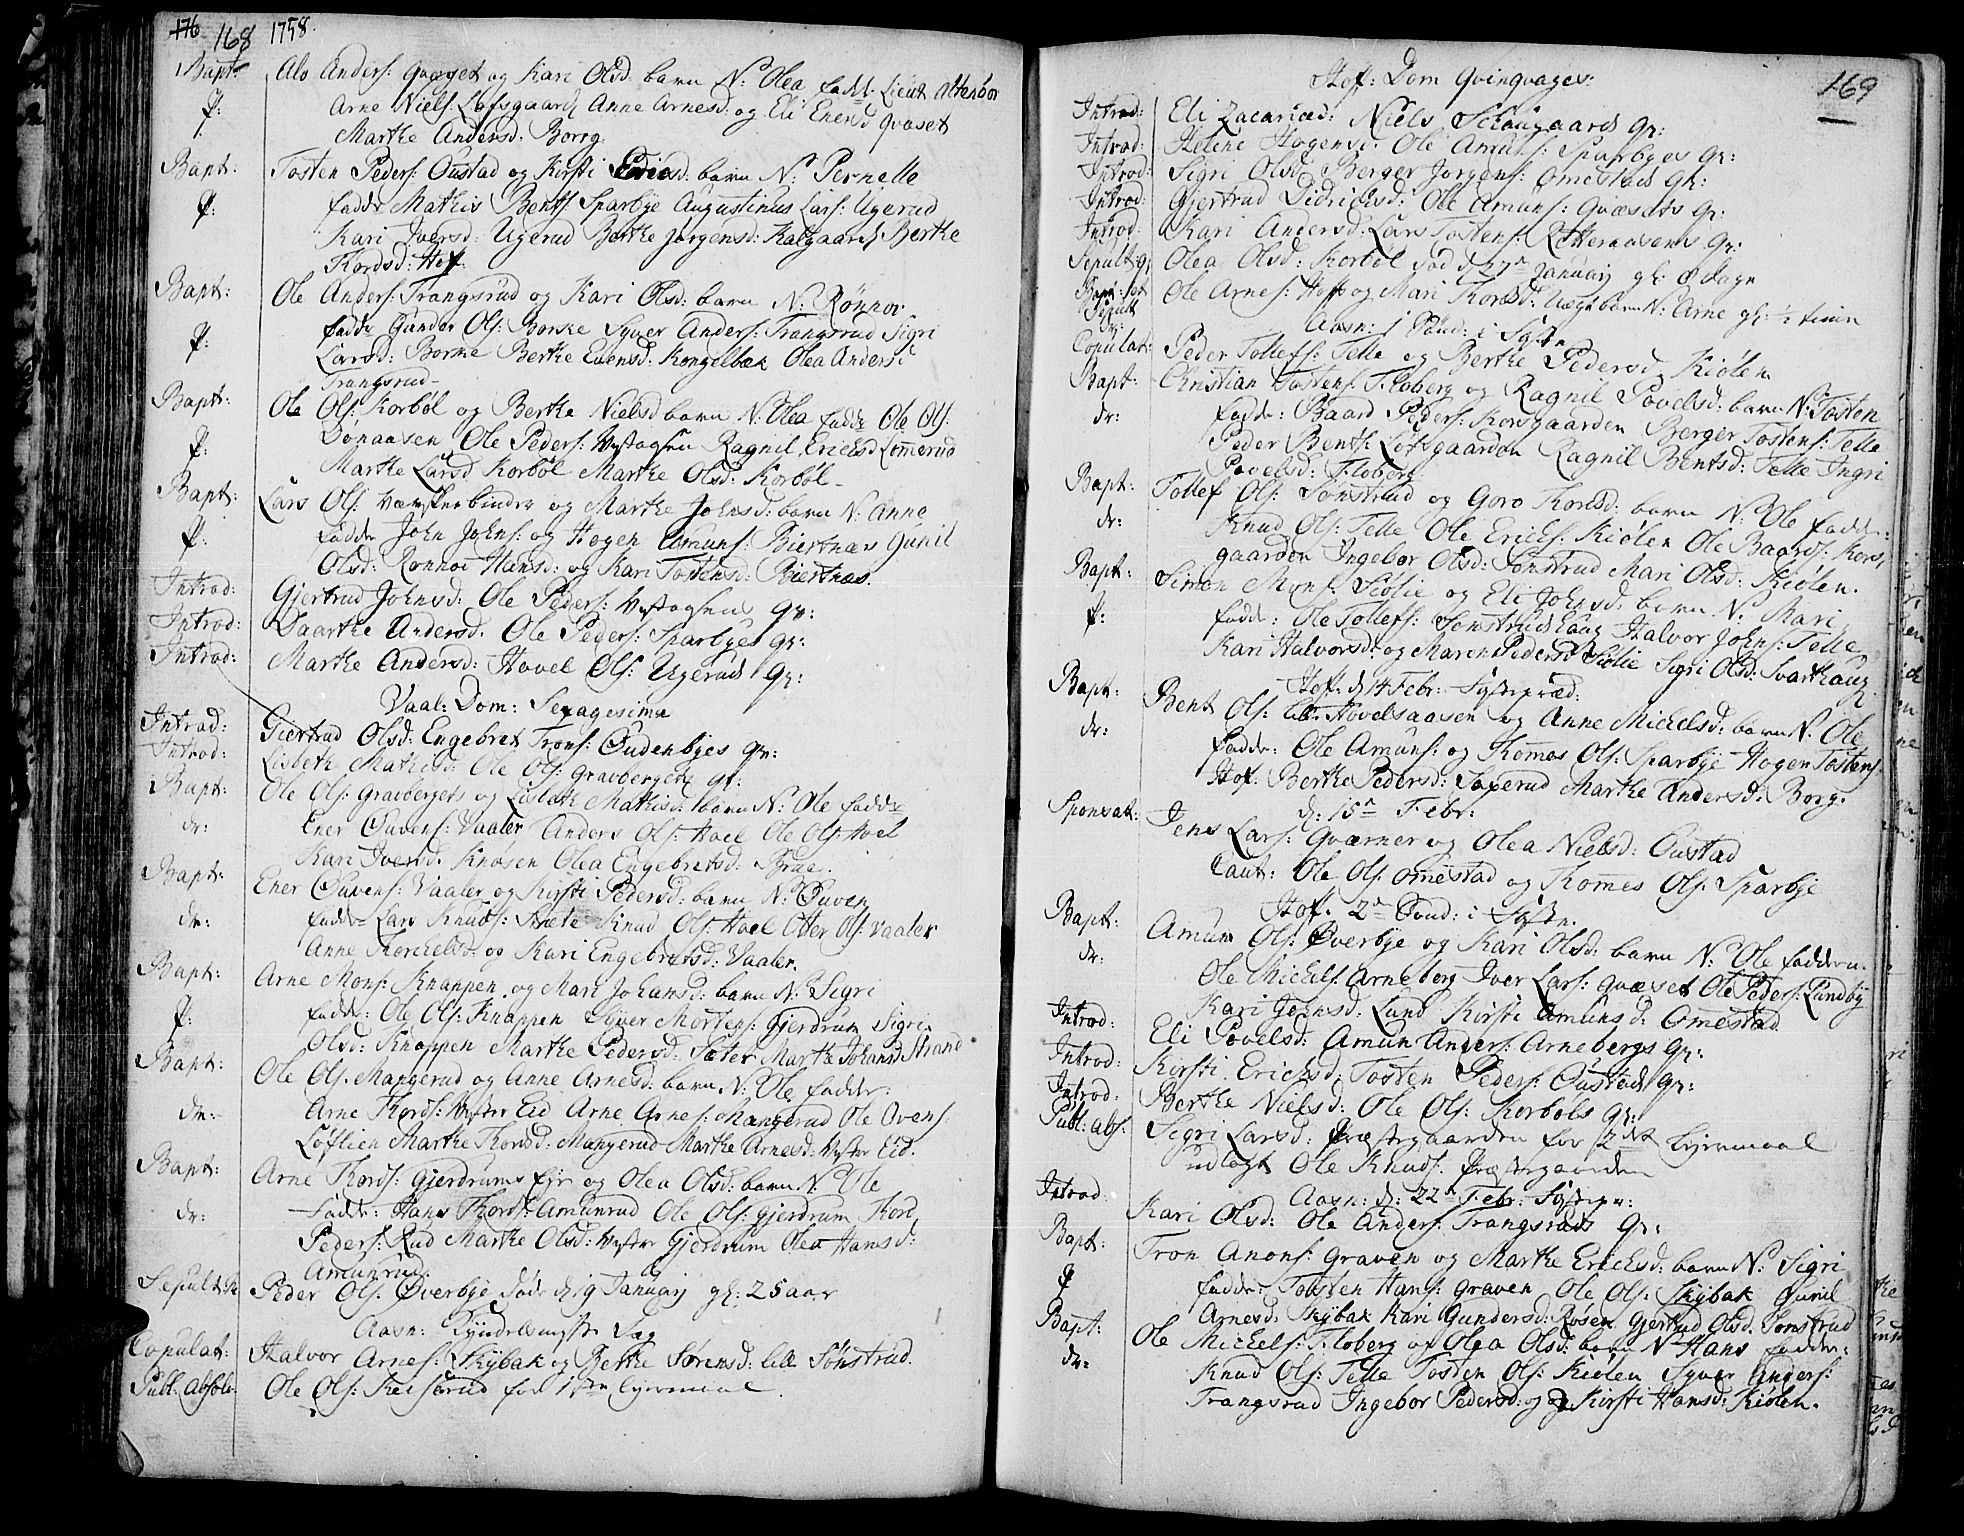 176 168 1758.
Bapt: Alo Anders: Qvæset og Kari Olsd: barn N: Olea fadd: Lieut Altenbor
p: Arne Niels: Løfsgaard Anne Arnesd: og Eli Enersd Qvæset
Marthe Andersd: Borrg.
Bapt: Tosten Peders: Oustad og Kirsti Ericsd: barn N: Pernelle
p: fadd: Mathis Bents: Sparbye Augustinus Lars: Ugerud
Kari Iversd: Ugerud Berthe Jørgensd: Kalgaard Berthe
Thordsd: Hof.
Bapt: Ole Anders: Trangsrud og Kari Olsd: barn N: Rønnov
p: fadde Gunder Ols: Borske Syver Anders: Trangsrud Sigri
Larsd: Borske Berthe Evensd: Kongelbæk Olea Andersd
Trangsrud-
Bapt: Ole Ols: Korbøl og Berthe Nielsd barn N: Olea fadd: Ole Ols:
p: Dønaasen Ole Peders: Ragnil Ericksd Lømerud
Marthe Larsd Korbøl Marthe Olsd: Korbøl-
Bapt: Lars Ols: og Marthe Johnsd: barn N: Anne
p: fadde John Johns: og Hogen Amuns: Biertnæs Gunil
Olsd: Rønnov Hansd: og Kari Tostensd: Biertnæs.
Introd: Gjertrud Johnsd: Ole Peders: Qv:
Introd: Andersd. Ole Peders: Sparbyes Qv:
Introd: Marthe Andersd: Hovel Ols: Ugeruds Qv:
Vaal: Dom: Sexagesima
Introd: Giertrud Olsd: Engebret Trons: Oudenbyes Qv:
Introd: Lisbeth Mathisd: Ole Ols: Gravbergets Qv:
Bapt: Ole Ols: Gravbergets og Lisbeth Mathisd: barn N: Ole fadde
dr: Ener Ouvens: Vaaler Anders Ols: Hoel Ole Ols: Hoel
Kari Iversd. Knøsen Olea Engebretsd:
Bapt: Ener Ouvens: Vaaler og Kirsti Pedersd: barn N: Ouven
dr: fadde Lars Knuds: Knud Ols: Hoel Otter Ols: Vaaler
Anne Thorchelsd: og Kari Engebretsd: Vaaler.
Bapt: Arne Mons: Knappen og Mari Johansd: barn N: Sigri
p: fadde: Ole Ols: Knappen Syver Mortens: Gjerdrum Sigri
Olsd: Knappen Marthe Pedersd: Sæter Marthe Johansd Strand
Bapt: Ole Ols. Mangerud og Anne Arnesd: barn N: Ole fadde:
dr: Arne Thords: Eid Arne Arnes: Mangerud Ole Ovens:
Løftlien Marthe Thorsd: Mangerud Marthe Arnesd: Eid.
Bapt: Arne Thords: Gjerdrums og Olea Olsd: barn N: Ole
dr: Fadde: Hans Thords: Amunrud Ole Ols: Gjerdrum Thord
Peders: Rud Marthe Olsd: Gjerdrum Olea Hansd:
Amunrud.
Sepult: Peder Ols: Øverbye død d: 19 January gl: 25 aar
Aasn: Kyndelmysse Dag
Copulat: Halvor Arnes: Skybak og Berthe Sørensd: lill Sønstrud.
Publ. Absol: Ole Ols: for 1ste Leyermaal.
169
Hof: Dom Qvinqvages:
Introd: Eli Zacariæd: Niels Schougaards Qv:
Introd: Helene Hogensd. Ole Amuns: Sparbyes Qv:
Introd: Sigri Olsd: Berger Jørgens: Omestads Qv:
Introd: Gjertrud Didrichsd: Ole Amuns: Qvæsets Qv:
Introd: Kari Andersd: Lars Tostens: Qv:
Sepult: Olea Olsd: Korbøl død d 27de January gl: 8 dage
Bapt: et Sepult Ole Arnes: Hof og Mari Thorsd: barn N: Arne gl: 1/2 time
Aasn: 1 Sønd: i Faste
Copulat: Peder Tollefs: Telle og Berthe Pedersd Kiølen
Bapt: Christian Tostens: Floberg og Ragnil Povelsd: barn N: Tosten
dr: fadde: Baard Peders: Korsgaarden Berger Tostens: Telle
Peder Bents: Løfsgaarden Ragnil Bentsd: Telle Ingri
Povelsd: Floberg.
Bapt: Tollef Ols: Sønstrud og Goro Thorsd: barn N: Ole fadde:
dr: Knud Ols: Telle Ole Erichs: Kiølen Ole Baards: Kors,
gaarden Ingebor Olsd: Sønstrud Mari Olsd: Kiølen.
Bapt: Simon Mons: Siølie og Eli Johnsd: barn N: Mari
p: fadde: Ole Tollefs: Sønstrudshaug Halvor Johns: Telle
Kari Halvorsd: og Maren Pedersd Siølie Sigri Olsd: Svarthaug.
Hof: d: 14 Febr:
Bapt: Bent Ols: Hovelsaasen og Anne Michelsd: barn N: Ole
dr: Fadde: Ole Amuns: og Thomes Ols: Sparbye Hogen Tostens:
Hof. Berthe Pedersd: Saxerud Marthe Andersd: Borg.
d: 15de Febr:
Sponsat: Jens Lars: Qværner og Olea Nielsd: Oustad
Caut: Ole Ols: Omestad og Thomes Ols: Sparbye
Hof. 2de Sønd: i Faste.
Bapt: Amun Ols: Øverbye og Kari Olsd: barn N: Ole faddere.
dr: Ole Michels: Arneberg Iver Lars: Qvæset Ole Peders: Lundby
Kari Lund Kirsti Amunsd: Omestad
Introd: Eli Povelsd: Amun Anders: Arnebergs Qv:
Introd: Kirsti Ericksd: Tosten Peders: Oustads Qv:
Introd: Berthe Nielsd: Ole Ols: Korbøls Qv:
Publ: Abs: Sigri Larsd: Præstegaarden for 2det Leyermaal
udlagt Ole Knuds: Præstegaarden
Aasn: d: 22de Febr:
Introd. Kari Olsd: Ole Anders: Trangsruds Qv:
Bapt: Tron Amons: Graven og Marthe Ericksd: barn N: Sigri
p fadde: Tosten Hans: Graven Ole Ols: Skybak Gunil
Arnesd: Skybak Kari Gundersd: Røsen Gjertrud Olsd: Sønstrud
Bapt: Ole Michels: Floberg og Olea Olsd: barn N Hans fadde:
dr: Knud Ols: Telle Tosten Ols: Kiølen Syver Anders:
Trangsrud Ingebor Pedersd: og Kirsti Hansd: Kiølen.